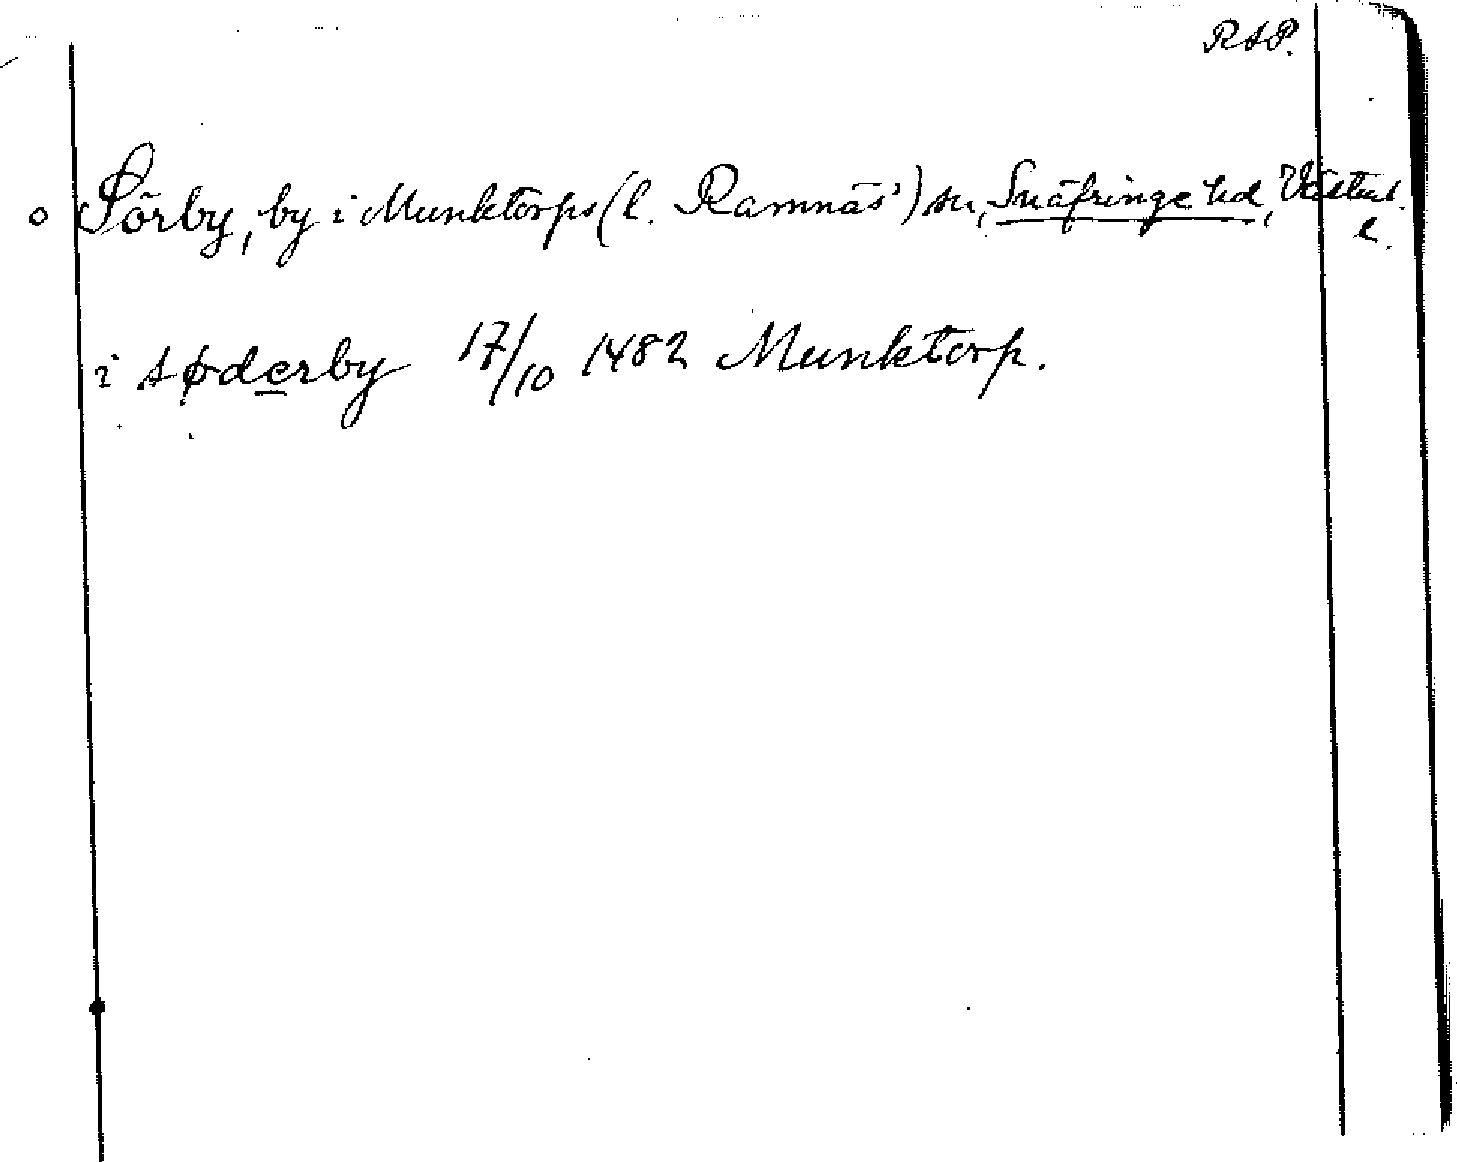 RAP.
o Sörby, by i Munktorps (l. Ramnäs') sn, Snäfringe hd, Västml.
l.
i søderby 17/10 1482 Munktorp.